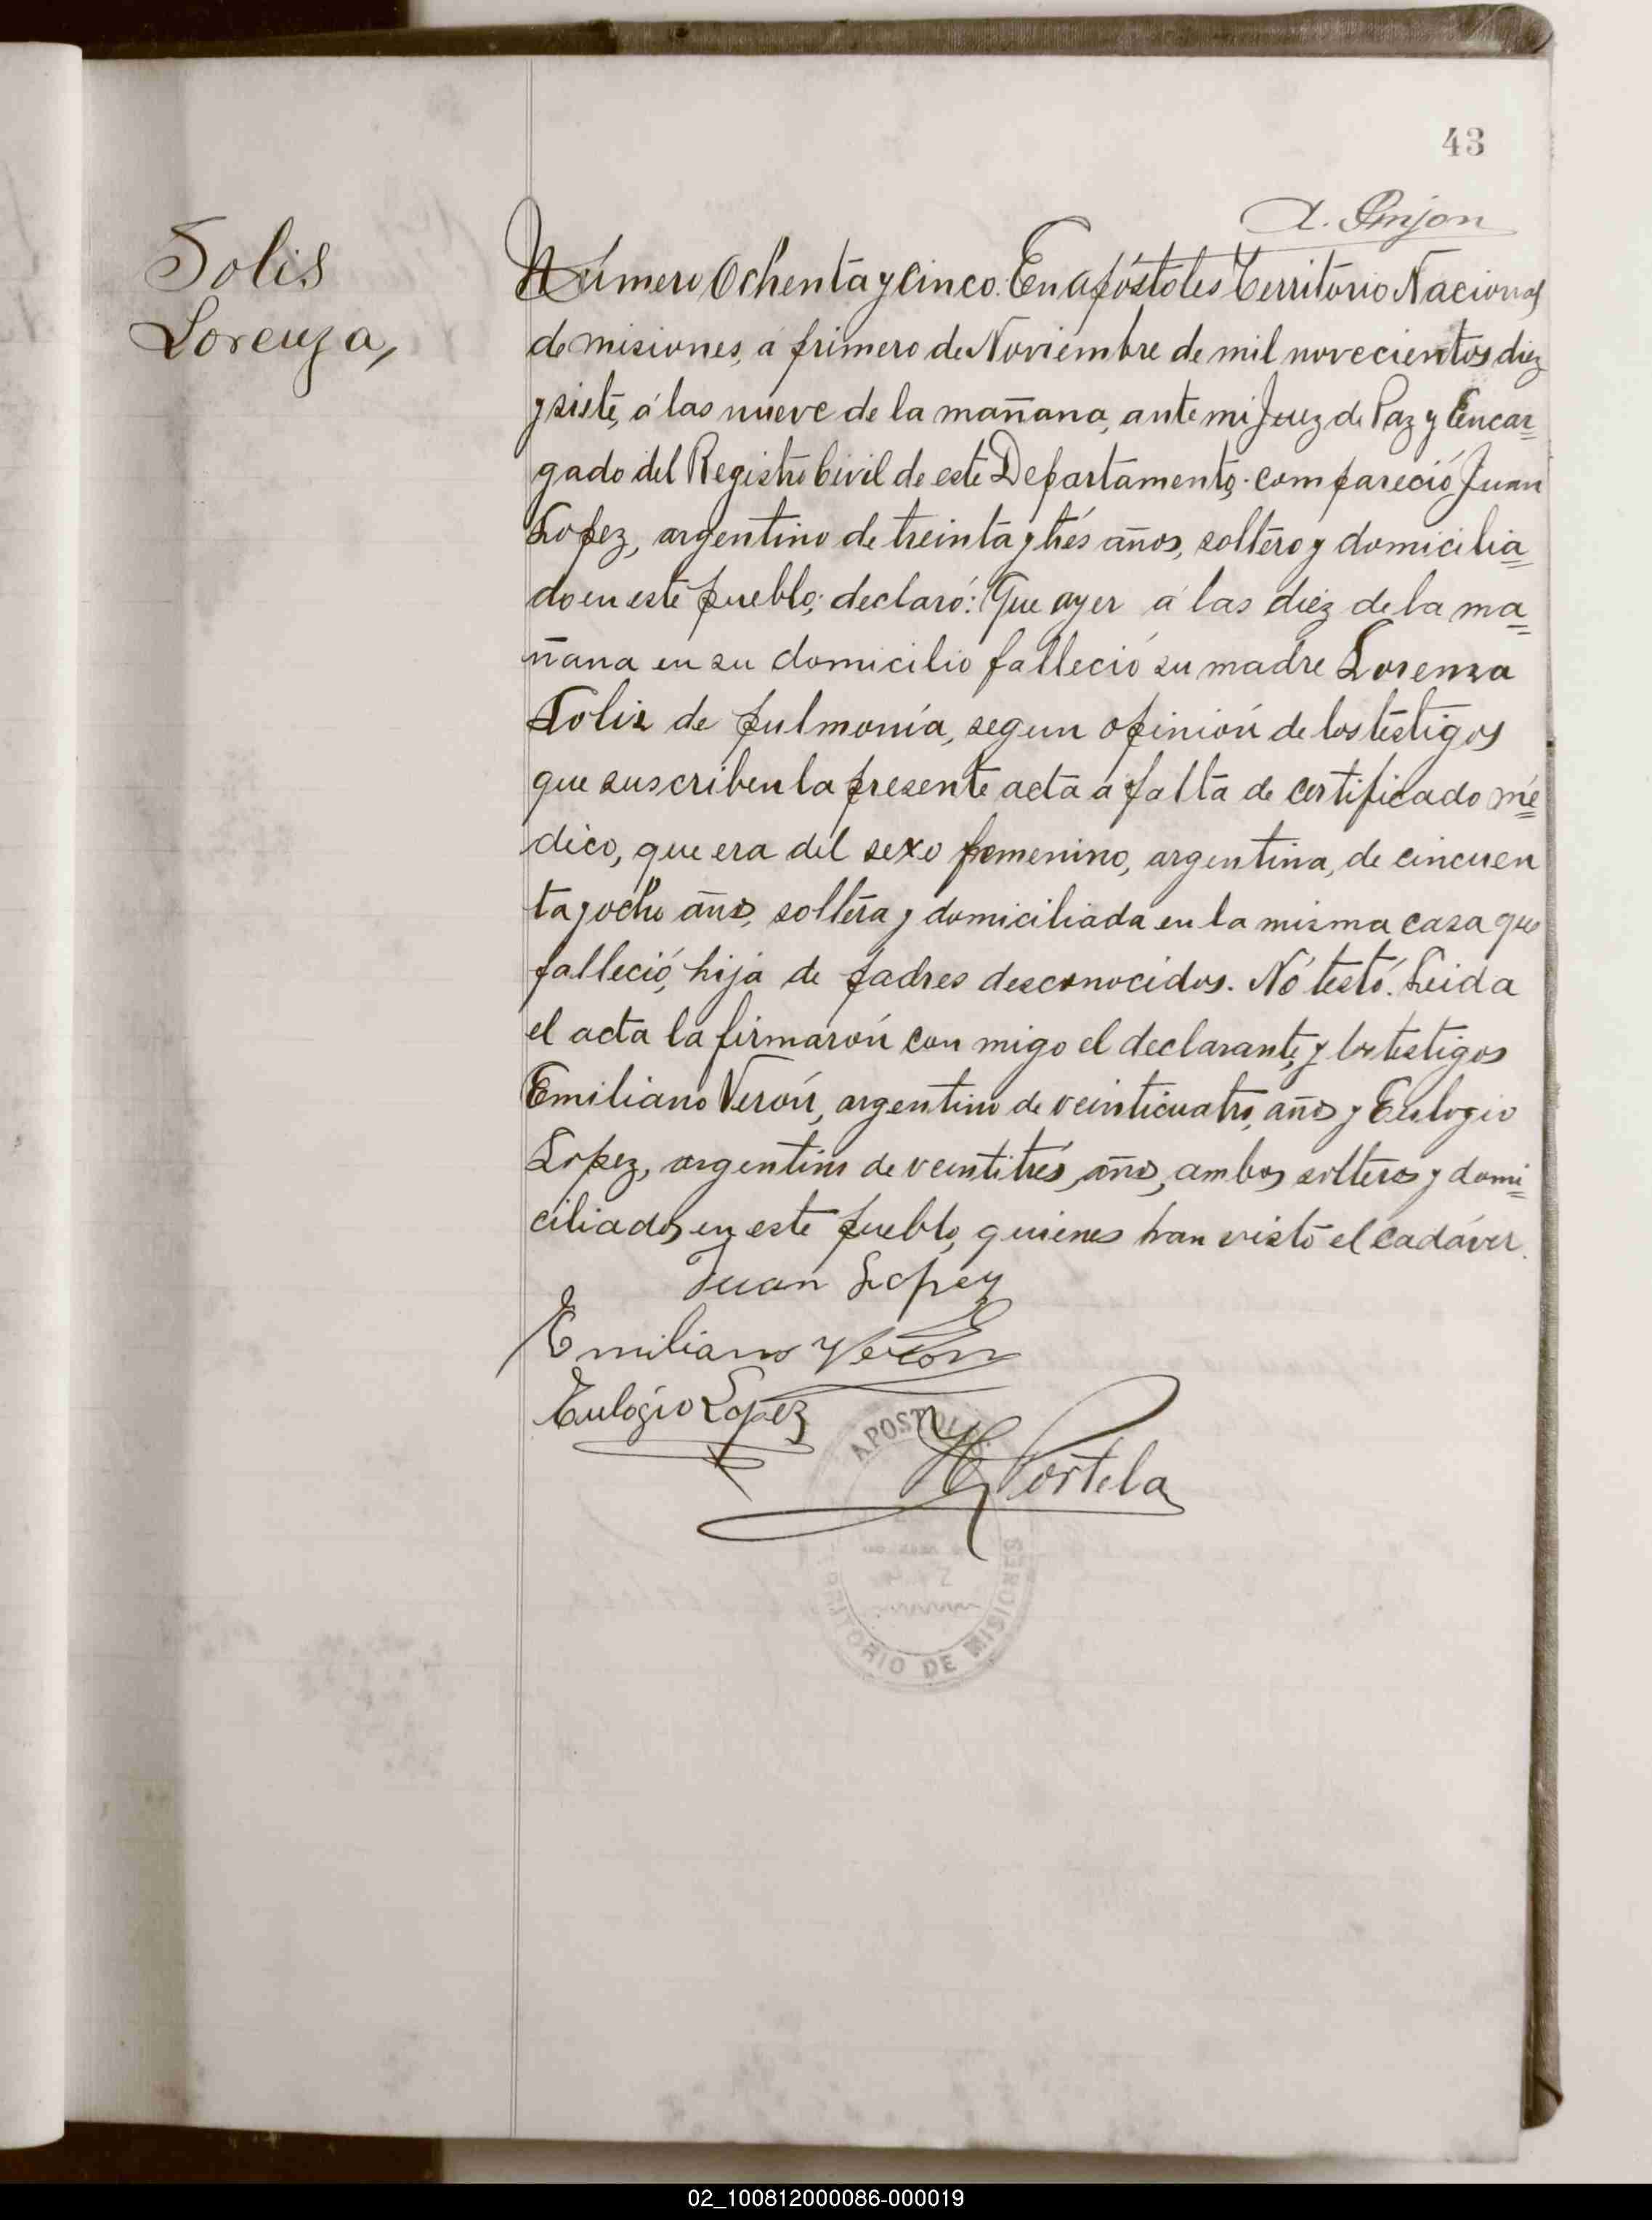 43
Solis
Lorenza,
Número Ochenta y cinco. En apóstoles Territorio Nacional
de misiones, á primero de Noviembre de mil novecientos diez
y siete, á las nueve de la mañana, ante mi Juez de Paz y Encar=
gado del Registro Civil de este Departamento, compareció Juan
Lopez, argentino de treinta y trés años, soltero y domicilia=
do en este pueblo; declaró: Que ayer á las diéz de la ma=
ñana en su domicilio falleció su madre Lorenza
Solis de pulmonía, segun opinión de los testigos
que suscriben la presente acta á falta de certificado mé=
dico, que era del sexo femenino, argentina, de cincuen
ta y ocho años, soltera y domiciliada en la misma casa que
falleció, hija de padres desconocidos. Nó testó. Leida
el acta la firmarón con migo el declarante, y los testigos
Emiliano Verón, argentino de veinticuatro, años y Eulogio
Lopez, argentino de veintitrés, años, ambos solteros y domi=
ciliados en este pueblo, quienes han visto el cadáver.
Juan Lopez
Emiliano Veron
Eulogio Lopez
H Portela
APOSTOLES
TERRITORIO DE MISIONES
02_100812000086-000019